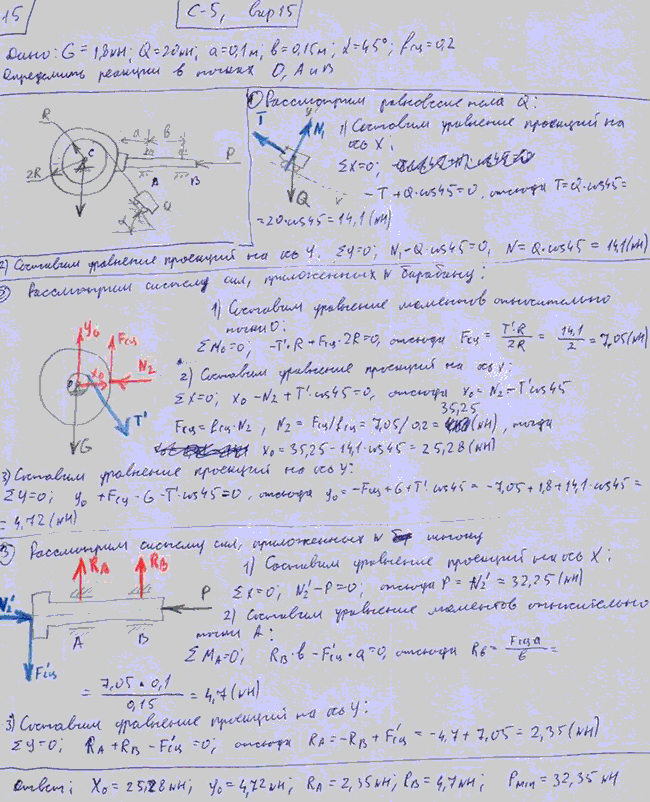 15
С-5, вар 15
Дано: G = 1,8 кН; Q = 20 кН; a = 0,1 м; b = 0,15 м; α = 45°; fсц = 0,2
Определить реакции в точках O, A и B
R
2R
C
a b
A B
P
Q
α
① Рассмотрим равновесие тела Q:
T
Y
N₁
Q
1) Составим уравнение проекций на
ось X:
ΣX=0;
-T+Q·cos45=0, отсюда T=Q·cos45=
=20·cos45=14,1 (кН)
2) Составим уравнение проекций на ось Y. ΣY=0; N₁-Q·cos45=0, N=Q·cos45 = 14,1 (кН)
② Рассмотрим систему сил, приложенных к барабану:
Y₀
Fсц
X₀
N₂
T'
G
1) Составим уравнение моментов относительно
точки O:
ΣM₀=0; -T'·R+Fсц·2R=0, отсюда Fсц = T'·R/2R = 14,1/2 = 7,05 (кН)
2) Составим уравнение проекций на ось X:
ΣX=0; X₀-N₂+T'·cos45=0, отсюда X₀=N₂-T'cos45
Fсц = fсц·N₂, N₂ = Fсц/fсц = 7,05/0,2 = 35,25 (кН), тогда
X₀=35,25-14,1·cos45 = 25,28 (кН)
3) Составим уравнение проекций на ось Y:
ΣY=0; Y₀+Fсц-G-T'·cos45=0, отсюда Y₀=-Fсц+G+T'·cos45 = -7,05+1,8+14,1·cos45 =
= 4,72 (кН)
③ Рассмотрим систему сил, приложенных к штоку
RA
RB
P
N₂'
A B
F'сц
1) Составим уравнение проекций на ось X:
ΣX=0; N₂'-P=0; отсюда P = N₂' = 32,25 (кН)
2) Составим уравнение моментов относительно
точки A:
ΣMA=0; RB·b-F'сц·a=0, отсюда RB = Fсц·a/b =
= 7,05·0,1/0,15 = 4,7 (кН)
3) Составим уравнение проекций на ось Y:
ΣY=0; RA+RB-F'сц=0, отсюда RA=-RB+F'сц = -4,7+7,05 = 2,35 (кН)
Ответ: X₀ = 25,28 кН; Y₀ = 4,72 кН; RA = 2,35 кН; RB = 4,7 кН; Pmin = 32,35 кН